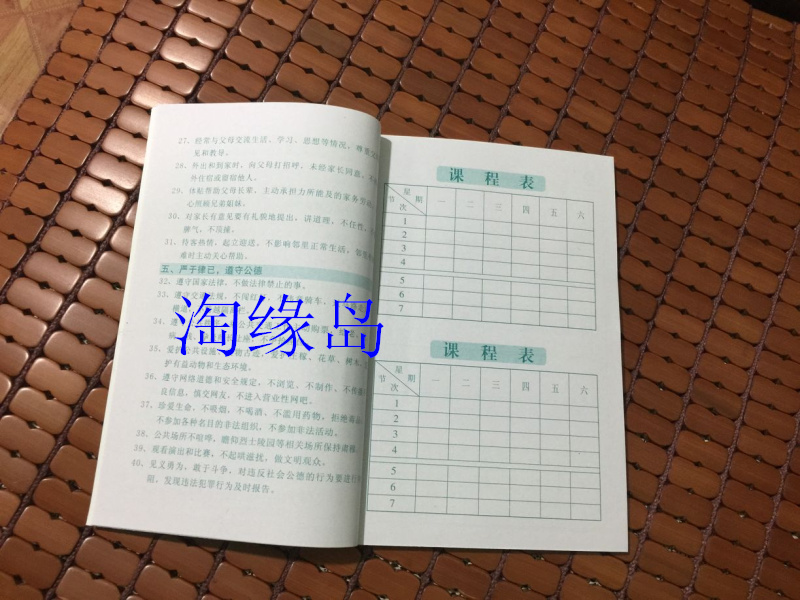 27、经常与父母交流生活、学习、思想等情况，尊重
见和教导。
28、外出和到家时，向父母打招呼，未经家长同意，不
外住宿或留宿他人。
29、体贴帮助父母长辈，主动承担力所能及的家务劳动，
心照顾兄弟姐妹。
30、对家长有意见要有礼貌地提出，讲道理，不任性，不
脾气，不顶撞。
31、待客热情，起立迎送。不影响邻里正常生活，邻里有
难时主动关心帮助。
五、严于律已，遵守公德
32、遵守国家法律，不做法律禁止的事。
33、遵守交通法规，不闯红灯，不
34、
35、爱护公共设施、文物古迹，爱护庄稼、花草、树木，
护有益动物和生态环境。
36、遵守网络道德和安全规定，不浏览、不制作、不传播
良信息，慎交网友，不进入营业性网吧。
37、珍爱生命，不吸烟，不喝酒，不滥用药物，拒绝毒品
不参加各种名目的非法组织，不参加非法活动。
38、公共场所不喧哗，瞻仰烈士陵园等相关场所保持肃穆。
39、观看演出和比赛，不起哄滋扰，做文明观众。
40、见义勇为，敢于斗争，对违反社会公德的行为要进行
阻，发现违法犯罪行为及时报告。
淘缘岛
课 程 表
星 期 一 二 三 四 五 六
节 次
1
2
3
4
5
6
7
课 程 表
星 期 一 二 三 四 五 六
节 次
1
2
3
4
5
6
7